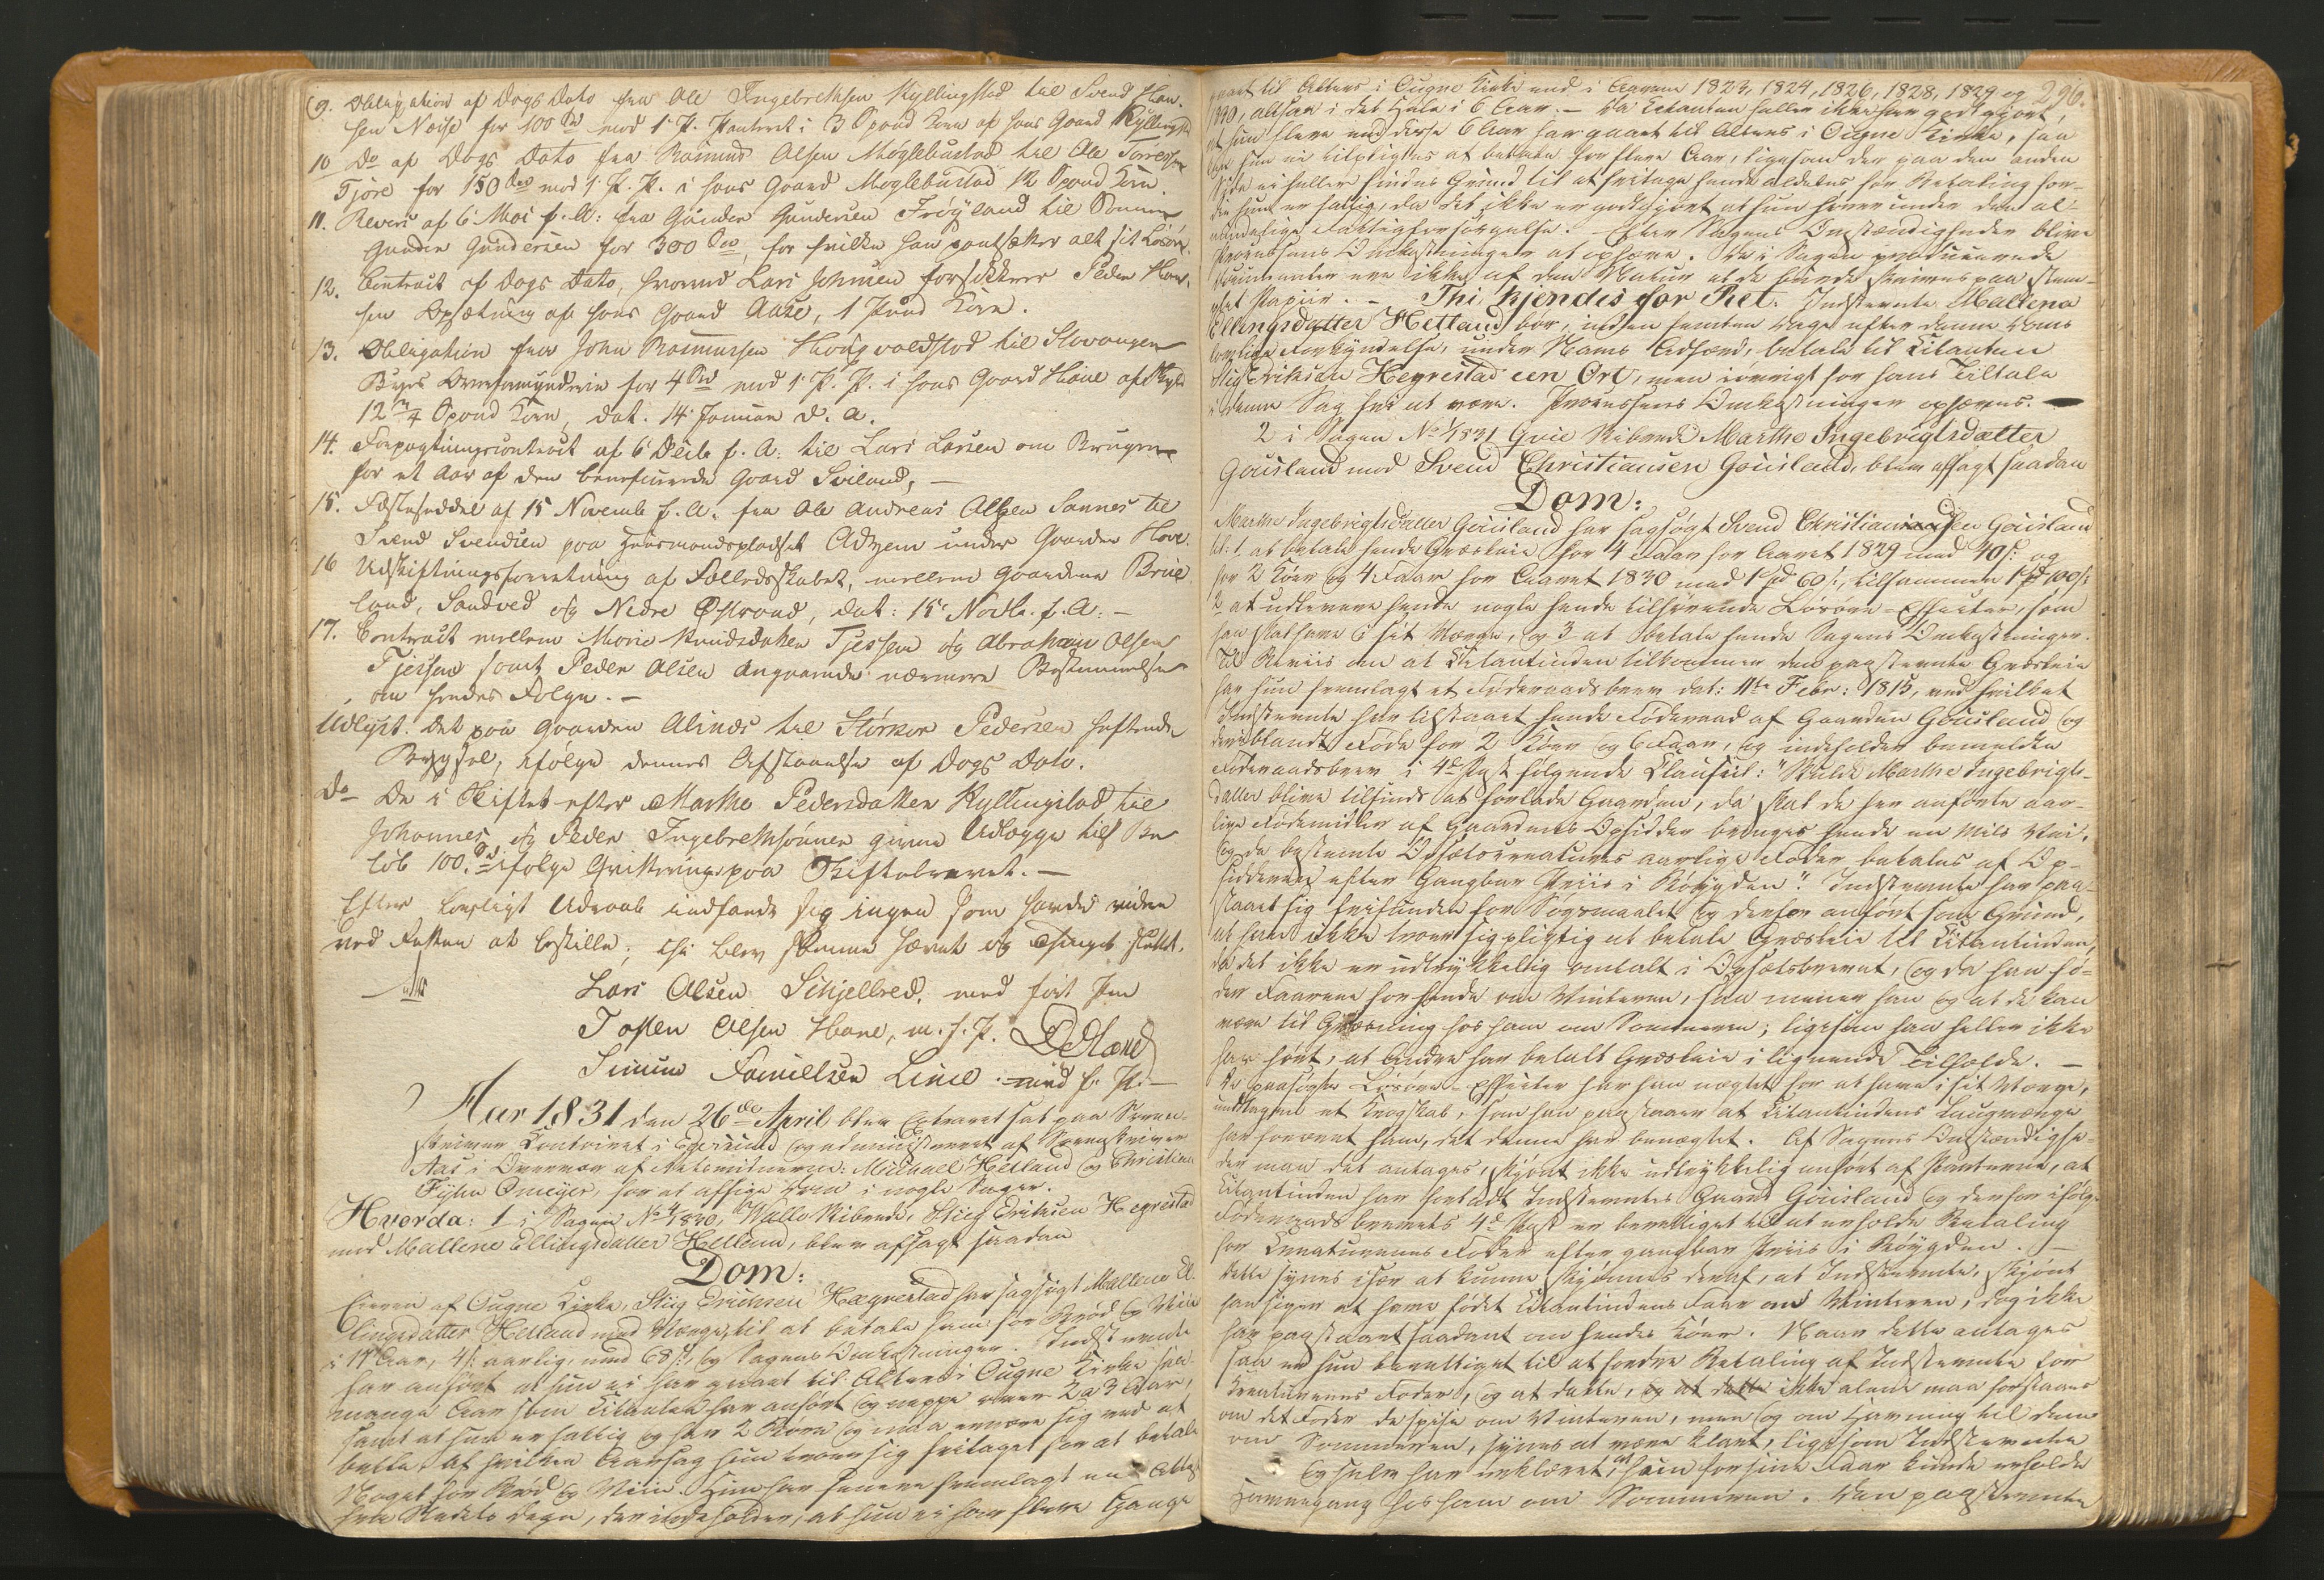 9. Obligation af Dags Dato fra Ole Ingebrethsen Kyllingstad til Svend Han-
sen Næse for 100 Spd mod 1. P. Panteret i 3 Spand Korn af hans Gaard Kyllingstad
10 Do af Dags Dato fra Rasmus Olsen Møglebustad til Ole Torressen
Tjøre for 150 Spd mod 1. P. P. i hans Gaard Møglebustad 12 Spand Korn.
11. Revers af 6 Mai f. A: fra Gunder Gundersen Frøyland til Sønnen
Gunder Gundersen for 300 Spd, for hvilke han pantsætter alt sit Løsøre.
12. Contract af Dags Dato, hvorved Lars Johnsen forsikkrer Peder Han-
sen Opsætning af hans Gaard Aase, 1 Pund Korn.
13. Obligation fra John Rasmussen Haugvaldstad til Stavanger
Byes Overformynderie for 4 Spd mod 1. P. P. i hans Gaard Haae af Skyld
12 Spand Korn, dat. 14 Januar d. a.
14. Forpagtningscontract af 6 Decbr f. A: til Lars Larsen om Brugen
for et Aar af den beneficerede Gaard Sviland, —
15. Fæsteseddel af 15 Novemb f. A. fra Ole Andreas Olsen Sannes til
Svend Svendsen paa Huusmandspladset under Gaarden Hove.
16 Udskiftningsforretning af Fælledsskabet, mellem Gaardene Brue
land, Sandved og Nedre Østraad, dat: 15 Novbr. f. A: —
17. Contract mellem Marie Knudsdatter Tjessem og Abraham Olsen
Tjessem samt Peder Olsen angaaende nærmere Bestemmelse
om hendes Følge. —
Udlyst. Det paa Gaarden Alsnes til Størkor Pedersen heftende
Bygsel, ifølge dennes Afstaaelse af Dags Dato.
Do De i Skiftet efter Marthe Pedersdatter Kyllingstad til
Johannes og Peder Ingebrethsønner givne Udlægge til Be
løb 100 Spd ifølge Qvittering paa Skiftebrevet. —
Efter lovligt Udraab indfandt sig ingen som havde videre
ved Retten at bestille; thi blev samme hævet og Thinget sluttet.
Lars Olsen Skjelbred, med ført Pen
Tosten Olsen Hane, m. f. P.
Simon Danielsen Lime med f. P. —
Aar 1831 den 26de April blev Extraret sat paa Soren-
skriver Contoiret i Egersund og administreret af Sorenskriver
Aas i Overvær af Retsvidnerne: Michael Hetland og Christian
Omeyer, for at afsige Dom i nogle Sager.
Hvorda: 1 i Sagen No 4/1830, Stiig Eriksen Hegrestad
mod Mallene Ellingsdatter Hetland, blev afsagt saadan
Dom:
Eieren af Ougne Kirke, Stiig Erichsen Hægrestad har sagsøgt Mallene El
lingsdatter Hetland med Værge, til at betale ham for Brød og Viin
i 17 Aar, 4 s: aarlig, med 68 s:, og Sagens Omkostninger. Indstevnte
har anført at hun ei har gaaet til Alters i Ougne Kirke saa
mange Aar som Citanten har anført og neppe over 2 a 3 Aar,
samt at hun er fattig og har 2 Børn og maa ernære sig ved at
betle, af hvilken Aarsag hun troer sig fritaget for at betale
Noget for Brød og Viin. Hun har senere fremlagt en Attest
fra Stedets Degn, der indeholder, at hun ei har flere Gange
296.
gaaet til Alters i Ougne Kirke end i Aarene 1823, 1824, 1826, 1828, 1829 og
1830, altsaa i det Hele i 6 Aar. — Da Citanten heller ikke har godtgjort,
at hun flere end disse 6 Aar har gaaet til Alters i Ougne Kirke, saa
bør hun ei tilpligtes at betale for flere Aar, ligesom der paa den anden
Side ei heller findes Grund til at fritage hende aldeles for Betaling for-
di hun er fattig, da det ikke er godtgjort at hun hører under den al-
mindelige Fattigforsørgelse. Efter Sagens Omstændigheder blive
Processens Omkostninger at ophæve. De i Sagen producerede
Documenter ere ikke af den Natur at de burde skrives paa stem-
plet Papiir. — Thi kjendes for Ret. Indstevnte Mallena
Ellingsdatter Hetland bør, inden femten Dage efter denne Doms
lovlige Forkyndelse, under Nams Adfærd, betale til Citanten
Stig Eriksen Hegrestad een Ort, men iøvrigt for hans Tiltale
i denne Sag fri at være. Processens Omkostninger ophæves. —
2 i Sagen No 1/1831 Marthe Ingebrigtsdatter
Gousland mod Svend Christiansen Gousland, blev afsagt saadan
Dom:
Marthe Ingebrigtsdatter Gousland har sagsøgt Svend Christiansen Gousland
til: 1. at betale hende Græsleie for 4 Faar for Aaret 1829 med 40 s: og
for 2 Køer og 4 Faar for Aaret 1830 med 1 Spd 60 s:, tilsammen 1 Spd 100 s:
2 at udlevere hende nogle hende tilhørende Løsøre-Effecter, som
han skal have i sit Værge, og 3 at betale hende Sagens Omkostninger.
Til Beviis om at Citantinden tilkommer den paastevnte Græsleie
har hun fremlagt et Føderaadsbrev dat: 11te Febr: 1815, ved hvilket
Indstevnte har tilstaaet hende Føderaad af Gaarden Gousland og
deriblandt Føde for 2 Køer og 6 Faar, og indeholder bemeldte
Føderaadsbrev i 4de Post følgende Clausul: "Skulde Marthe Ingebrigts-
datter blive tilsinds at forlade Gaarden, da skal de her anførte aar-
lige Fødemidler af Gaardens Opsidder bringes hende en Miils Vei,
og da bestemte Opsætscreaturers aarlige Foder betales af Op-
sidderen efter Gangbar Priis i Bøygden". Indstevnte har paa-
staaet sig frifunden for Søgsmaalet og derfor anført som Grund,
at han ikke troer sig pligtig at betale Græsleie til Citantinden,
da det ikke er udtrykkelig omtalt i Opsætsbrevet, og da han fø-
der Faarene for hende om Vinteren, saa mener han og at de kan
være til Græsning hos ham om Sommeren; ligesom han heller ikke
har hørt, at Andre har betalt Græsleie i lignende Tilfælde. —
De paasøgte Løsøre-Effecter har han nægtet for at have i sit Værge,
undtagen et Krogskab, som han paastaaer at Citantindens Laugværge
har foræret ham, det denne har benægtet. Af Sagens Omstændighe-
der maa det antages, skjønt ikke udtrykkelig anført af Parterne, at
Citantinden har forladt Indstevntes Gaard Gousland og derfor ifølge
Føderaadsbrevets 4de Post er berettiget til at erholde Betaling
for Creaturenes Foder efter gangbar Priis i Bøygden. —
Dette synes især at kunne skjønnes deraf, at Indstevnte, skjønt
han siger at have født Citantindens Faar om Vinteren, dog ikke
har paastaaet saadant om hendes Køer. Naar dette antages
saa er hun berettiget til at fordre Betaling af Indstevnte for
Creaturenes Foder, og at dette, og at dette ikke alene maa forstaaes
om det Foder de spise om Vinteren, men og om Havning til dem
om Sommeren, synes at være klart, ligesom Indstevnte
og selv har erklæret, at hun for sine Faar kunde erholde
Havnegang hos ham om Sommeren. Den paastevnte